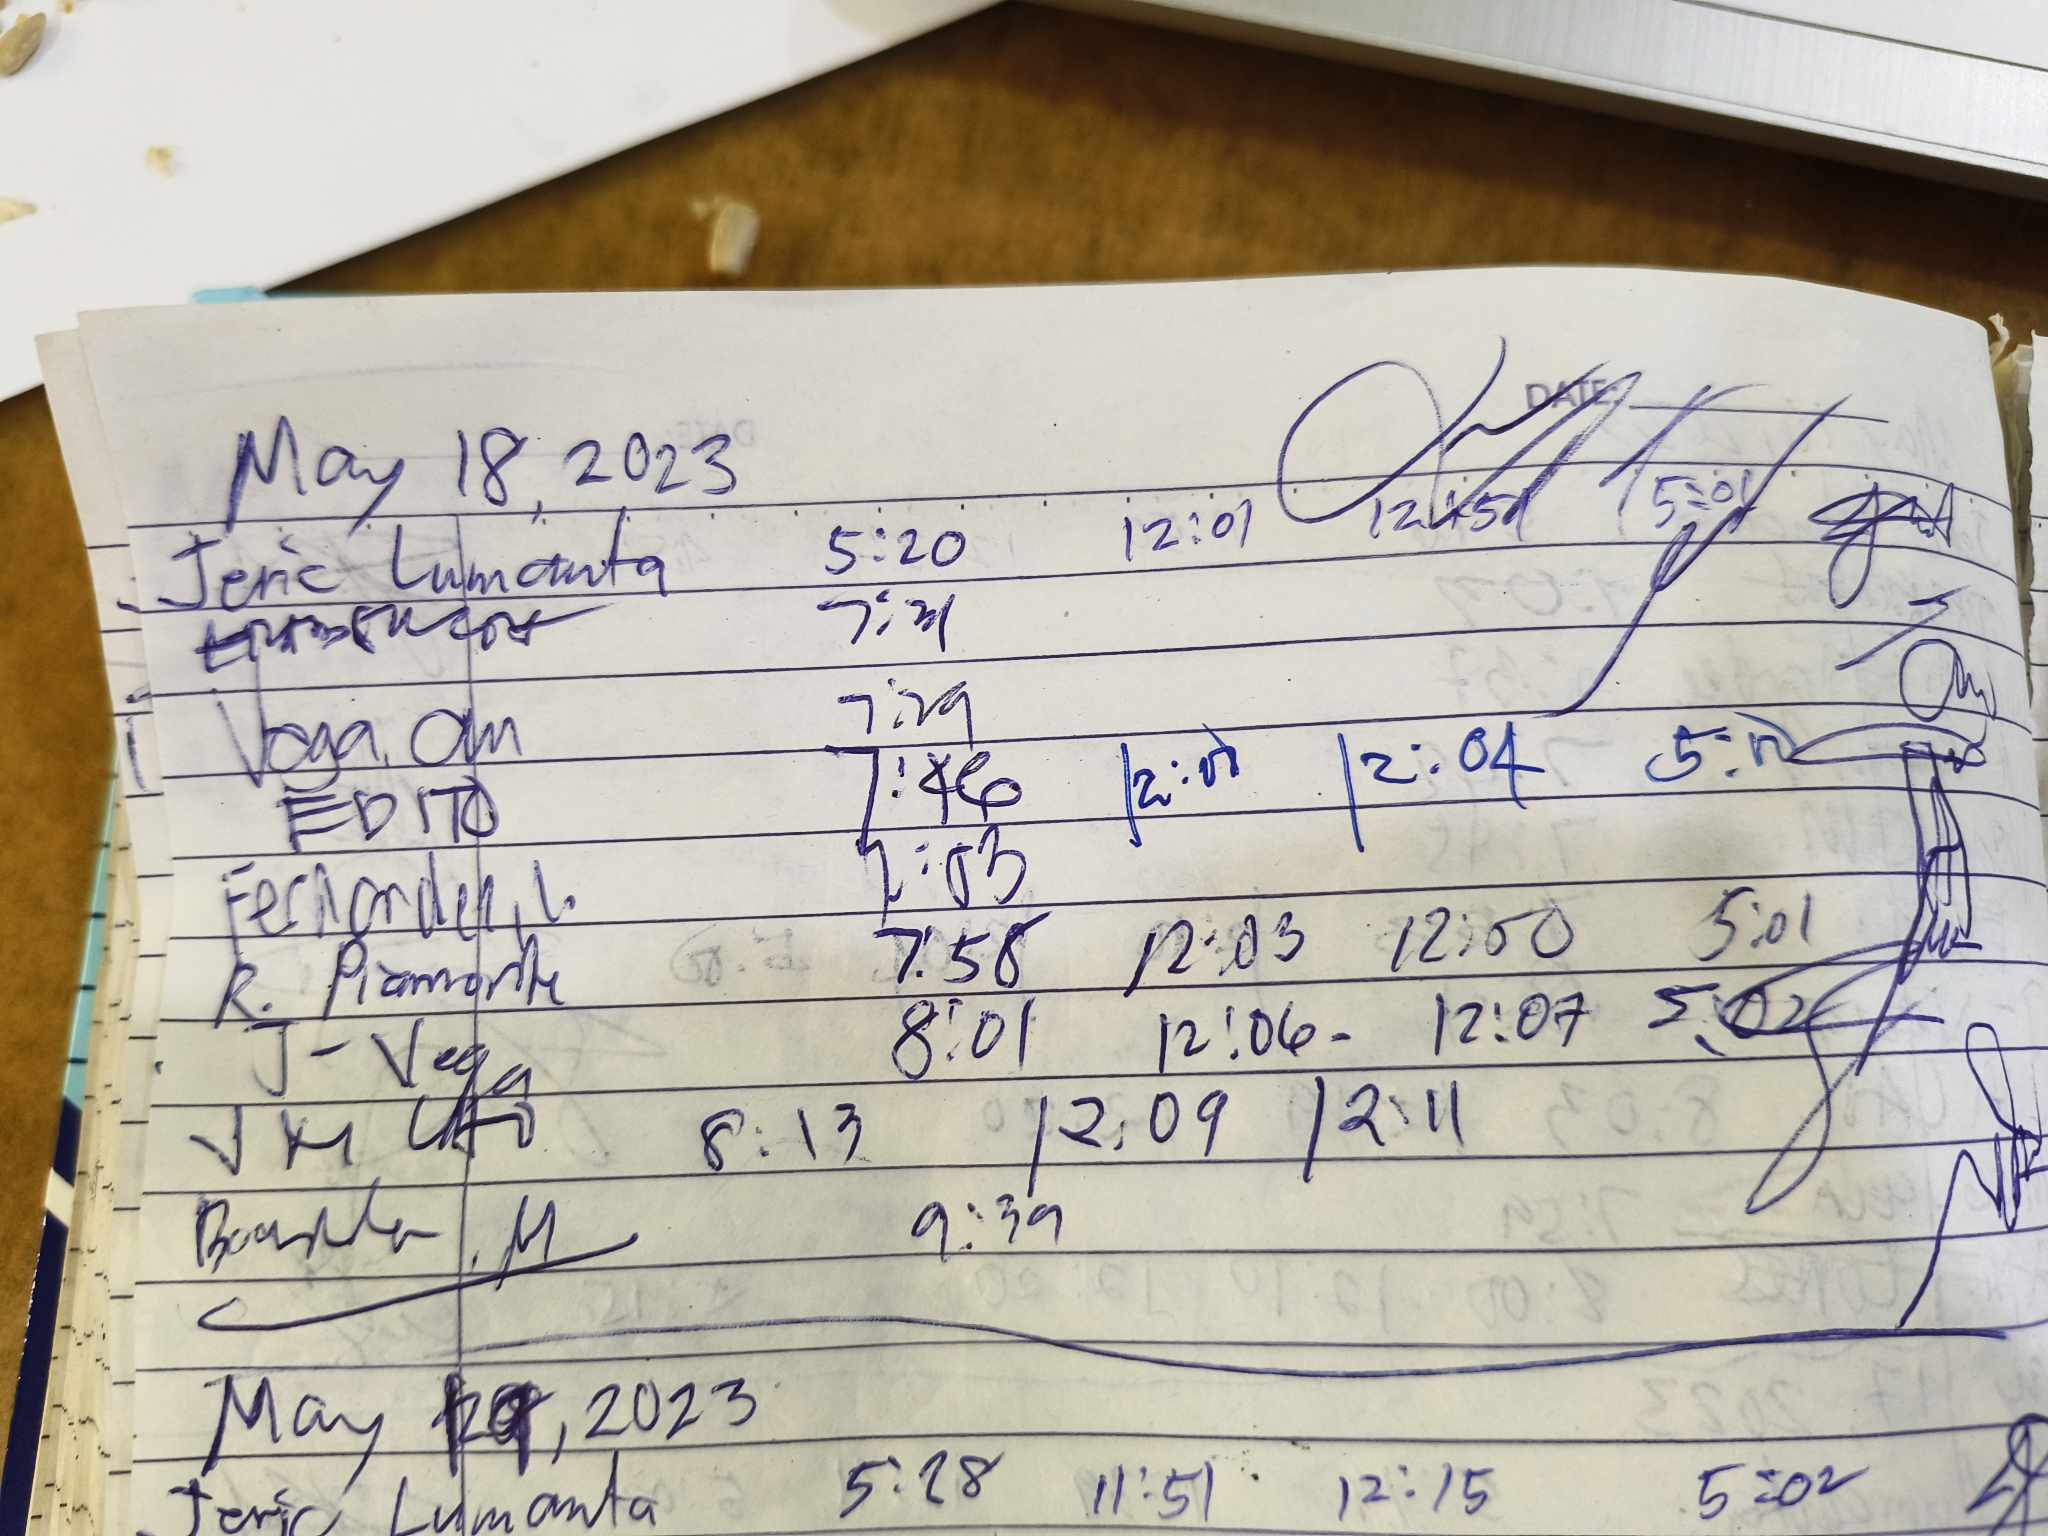 DATE:
May 18, 2023
Jeric Lumanta 5:20 12:01 12:51 5:01
7:31
Vega, Om 7:29
EDITO 7:46 12:01 12:04 5:10
Fernandez, L. 7:53
R. Piamonte 7:58 12:03 12:50 5:01
J-Vega 8:01 12:06- 12:07 5:02
8:13 12:09 12:11
M 9:39
May 19, 2023
Jeric Lumanta 5:28 11:51 12:15 5:02